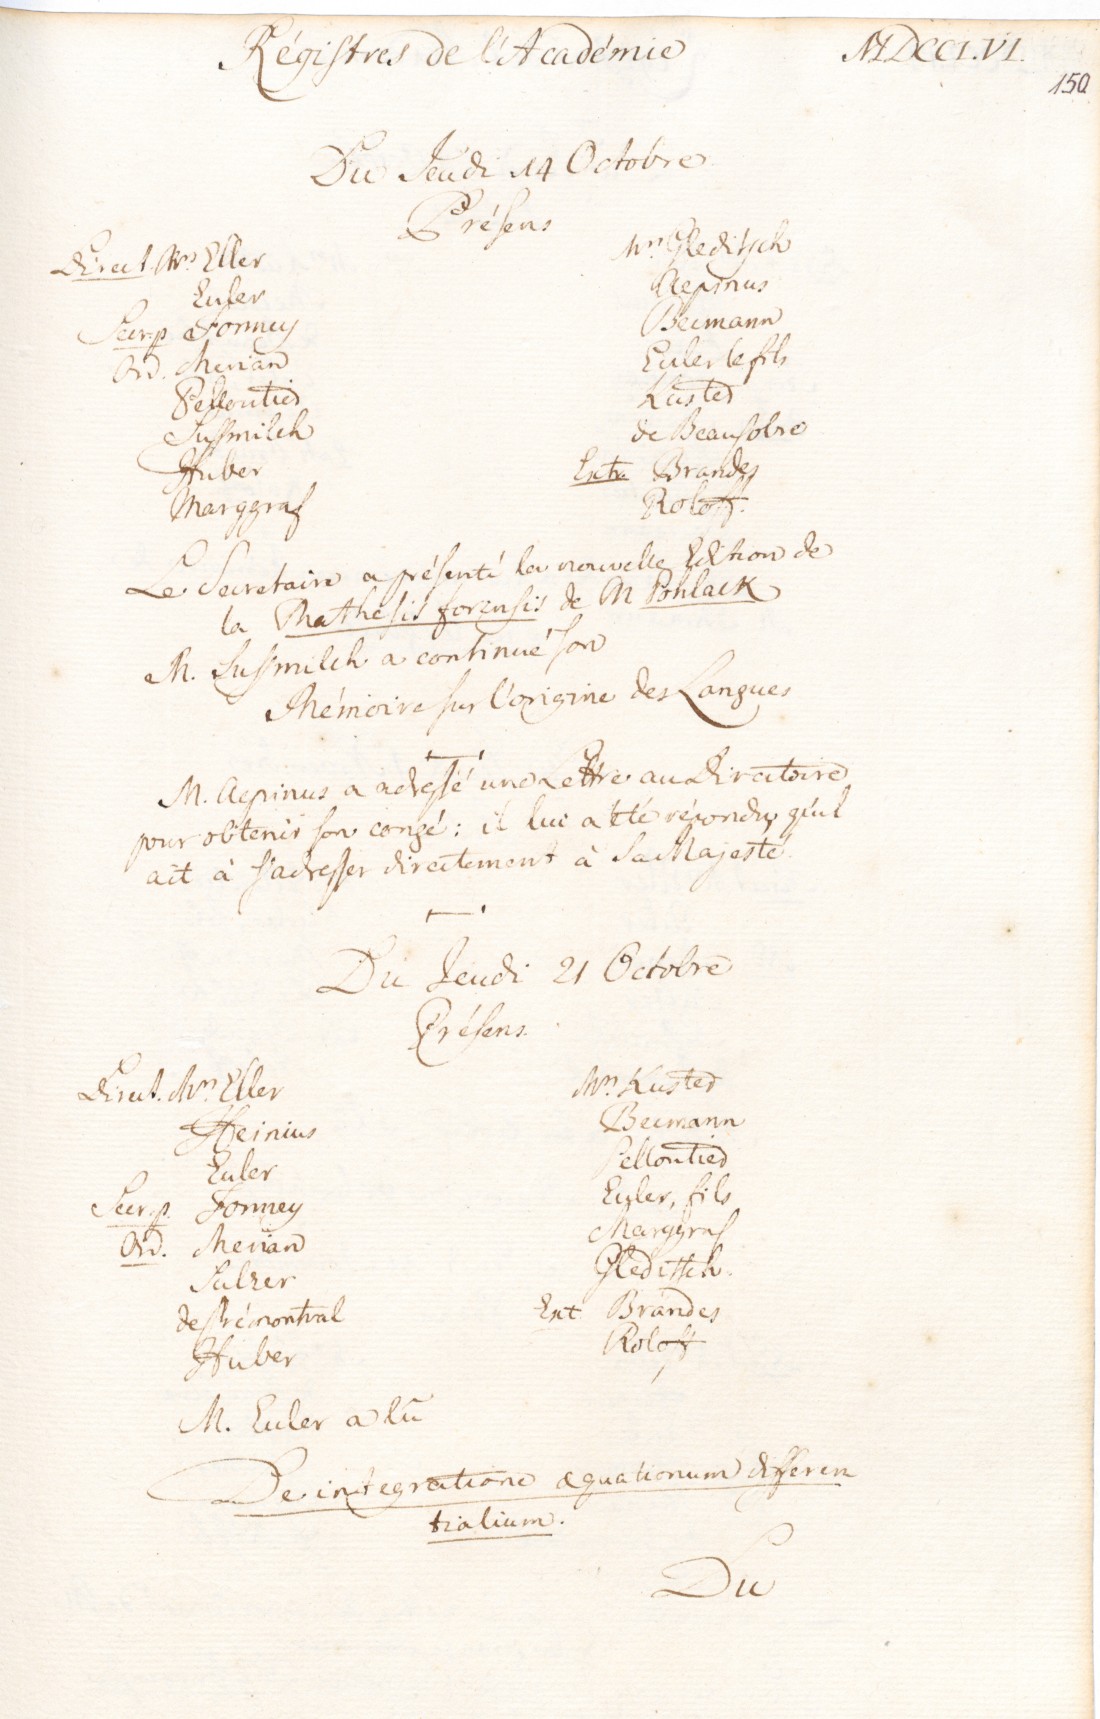 Régistres de l'Académie MDCCLVI.
150
Du Jeudi 14 Octobre
Présens
Direct. Mrs Eller
Euler
Secr. p Formey
Ord. Merian
Pelloutier
Sussmilch
Huber
Marggraf
Mrs Gleditsch
Aepinus
Becmann
Euler le fils
Kuster
de Beausobre
Extr. Brandes
Roloff.
Le Secretaire a présenté la nouvelle Edition de
la Mathesis forensis de M Pohlack
M. Sussmilch a continué son
Mémoire sur l'origine des Langues
M. Aepinus a adressé une Lettre au Directoire
pour obtenir son congé: il lui a été répondu qu'il
ait à s'adresser directement à Sa Majesté.
Du Jeudi 21 Octobre
Présens.
Direct. Mrs Eller
Heinius
Euler
Secr. p. Formey
Ord. Merian
Sulzer
de Prémontval
Huber
Mrs Kuster
Becmann
Pelloutier
Euler, fils
Marggraf
Gleditsch.
Ext Brandes
Roloff
M. Euler a lû
De integratione æquationum differen
tialium.
Du